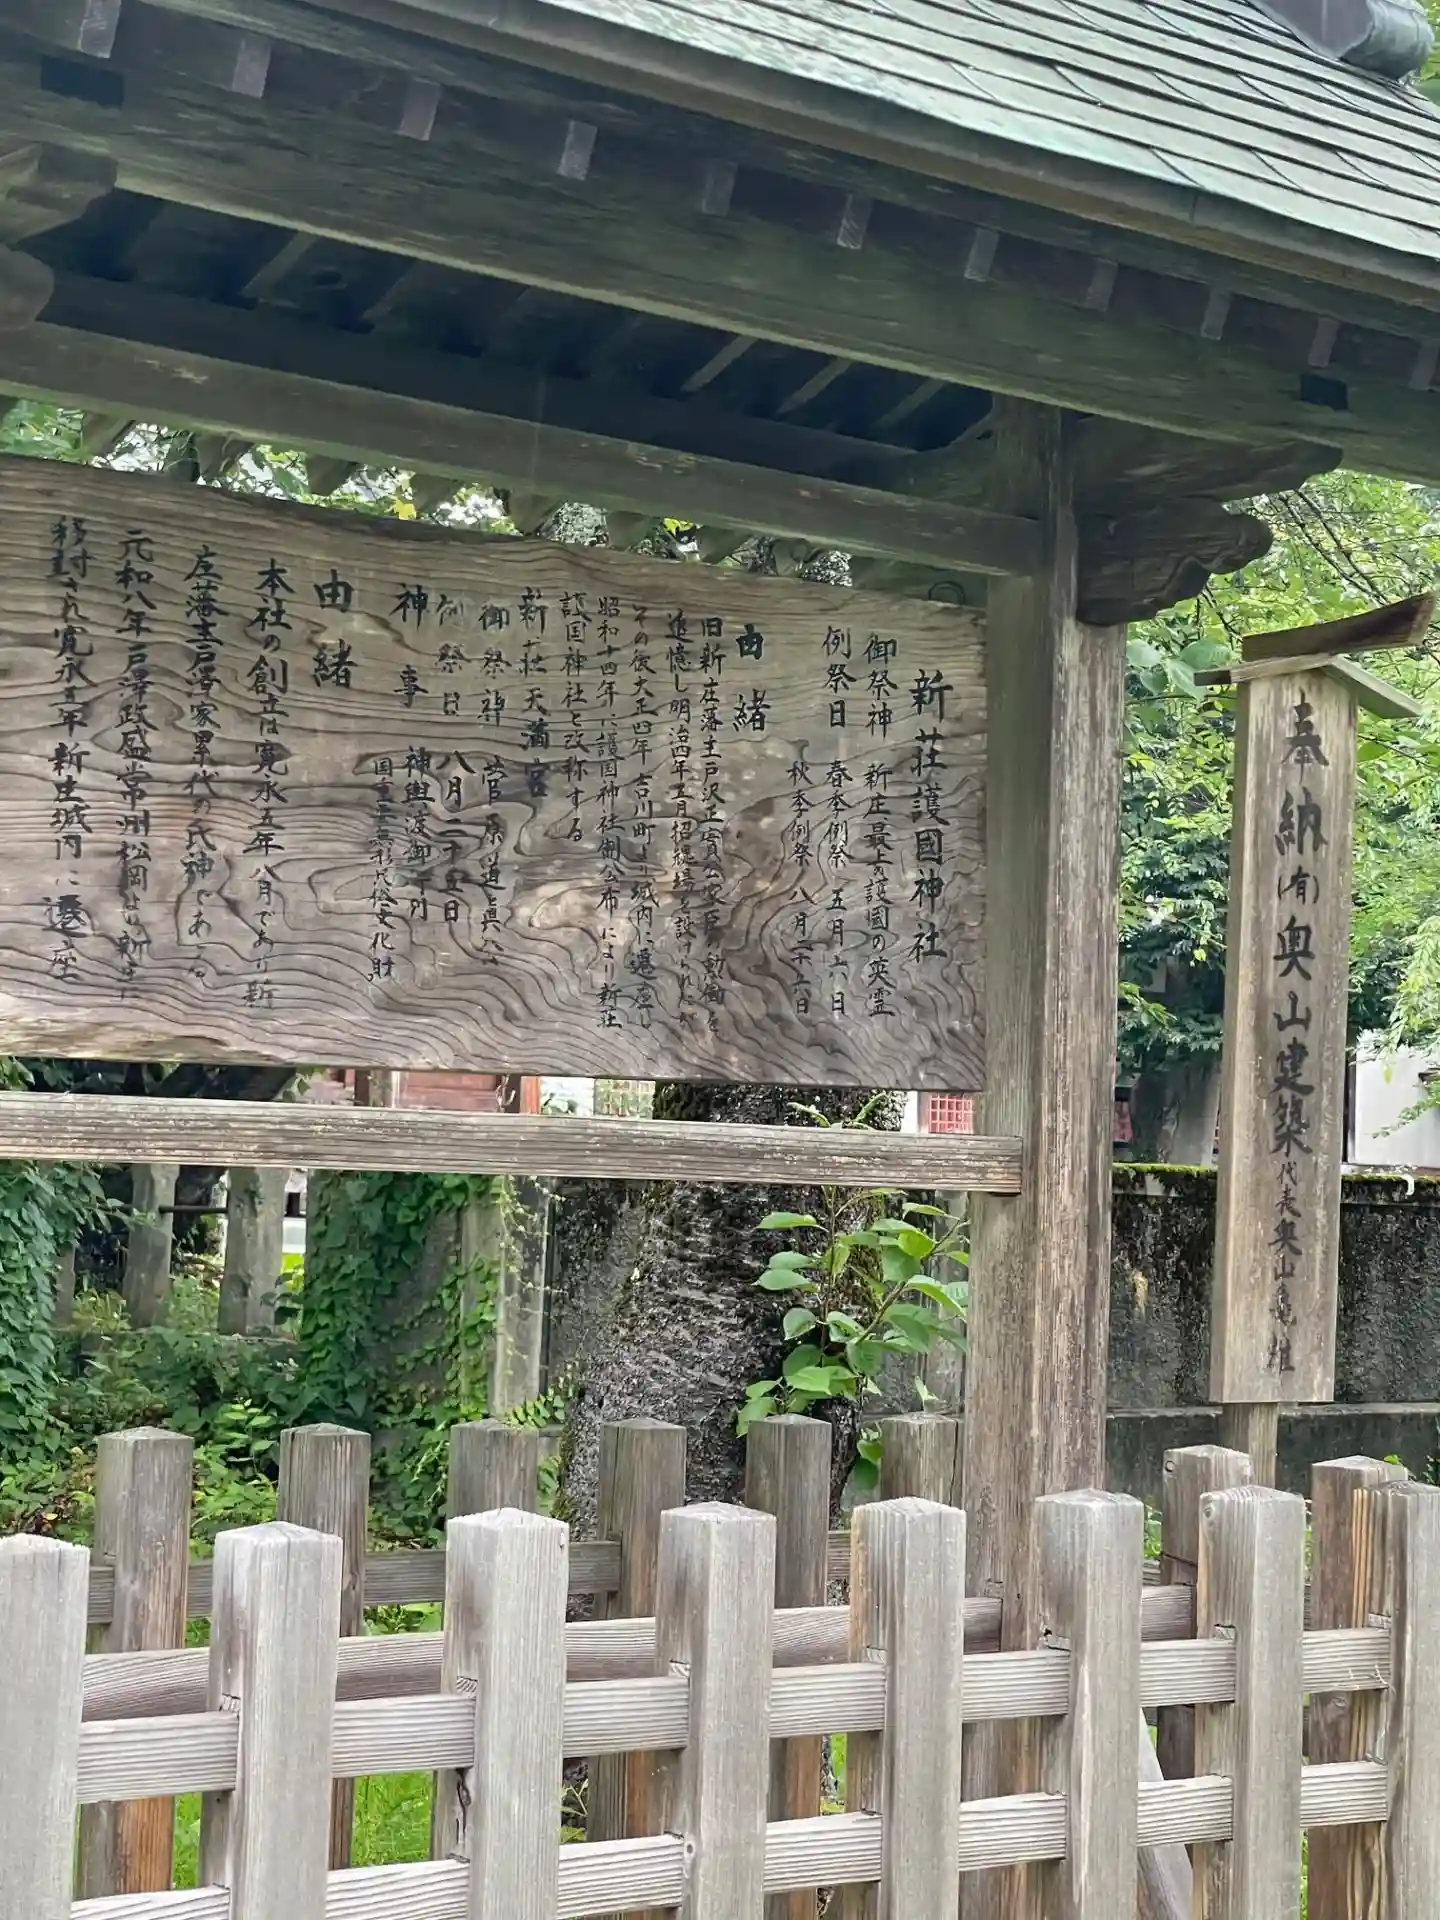 新荘護國神社
御祭神 新庄最上護國の英霊
例祭日 春季例祭 五月十六日
秋季例祭 八月二十六日
由緒
旧新庄藩主戸沢正實公家臣の勲功を
追憶し明治四年五月招魂場を設けられたが
その後大正四年吉川町より城内に遷座し
昭和十四年に護国神社制公布により新荘
護国神社と改称する
新荘天満宮
御祭神 菅原道真公
例祭日 八月二十五日
神事 神輿渡御行列
国重要無形民俗文化財
由緒
本社の創立は寛永五年八月であり新
庄藩主戸澤家累代の氏神である
元和八年戸澤政盛常州松岡より新庄に
移封され寛永五年新庄城内に遷座
奉納 (有)奥山建築 代表 奥山